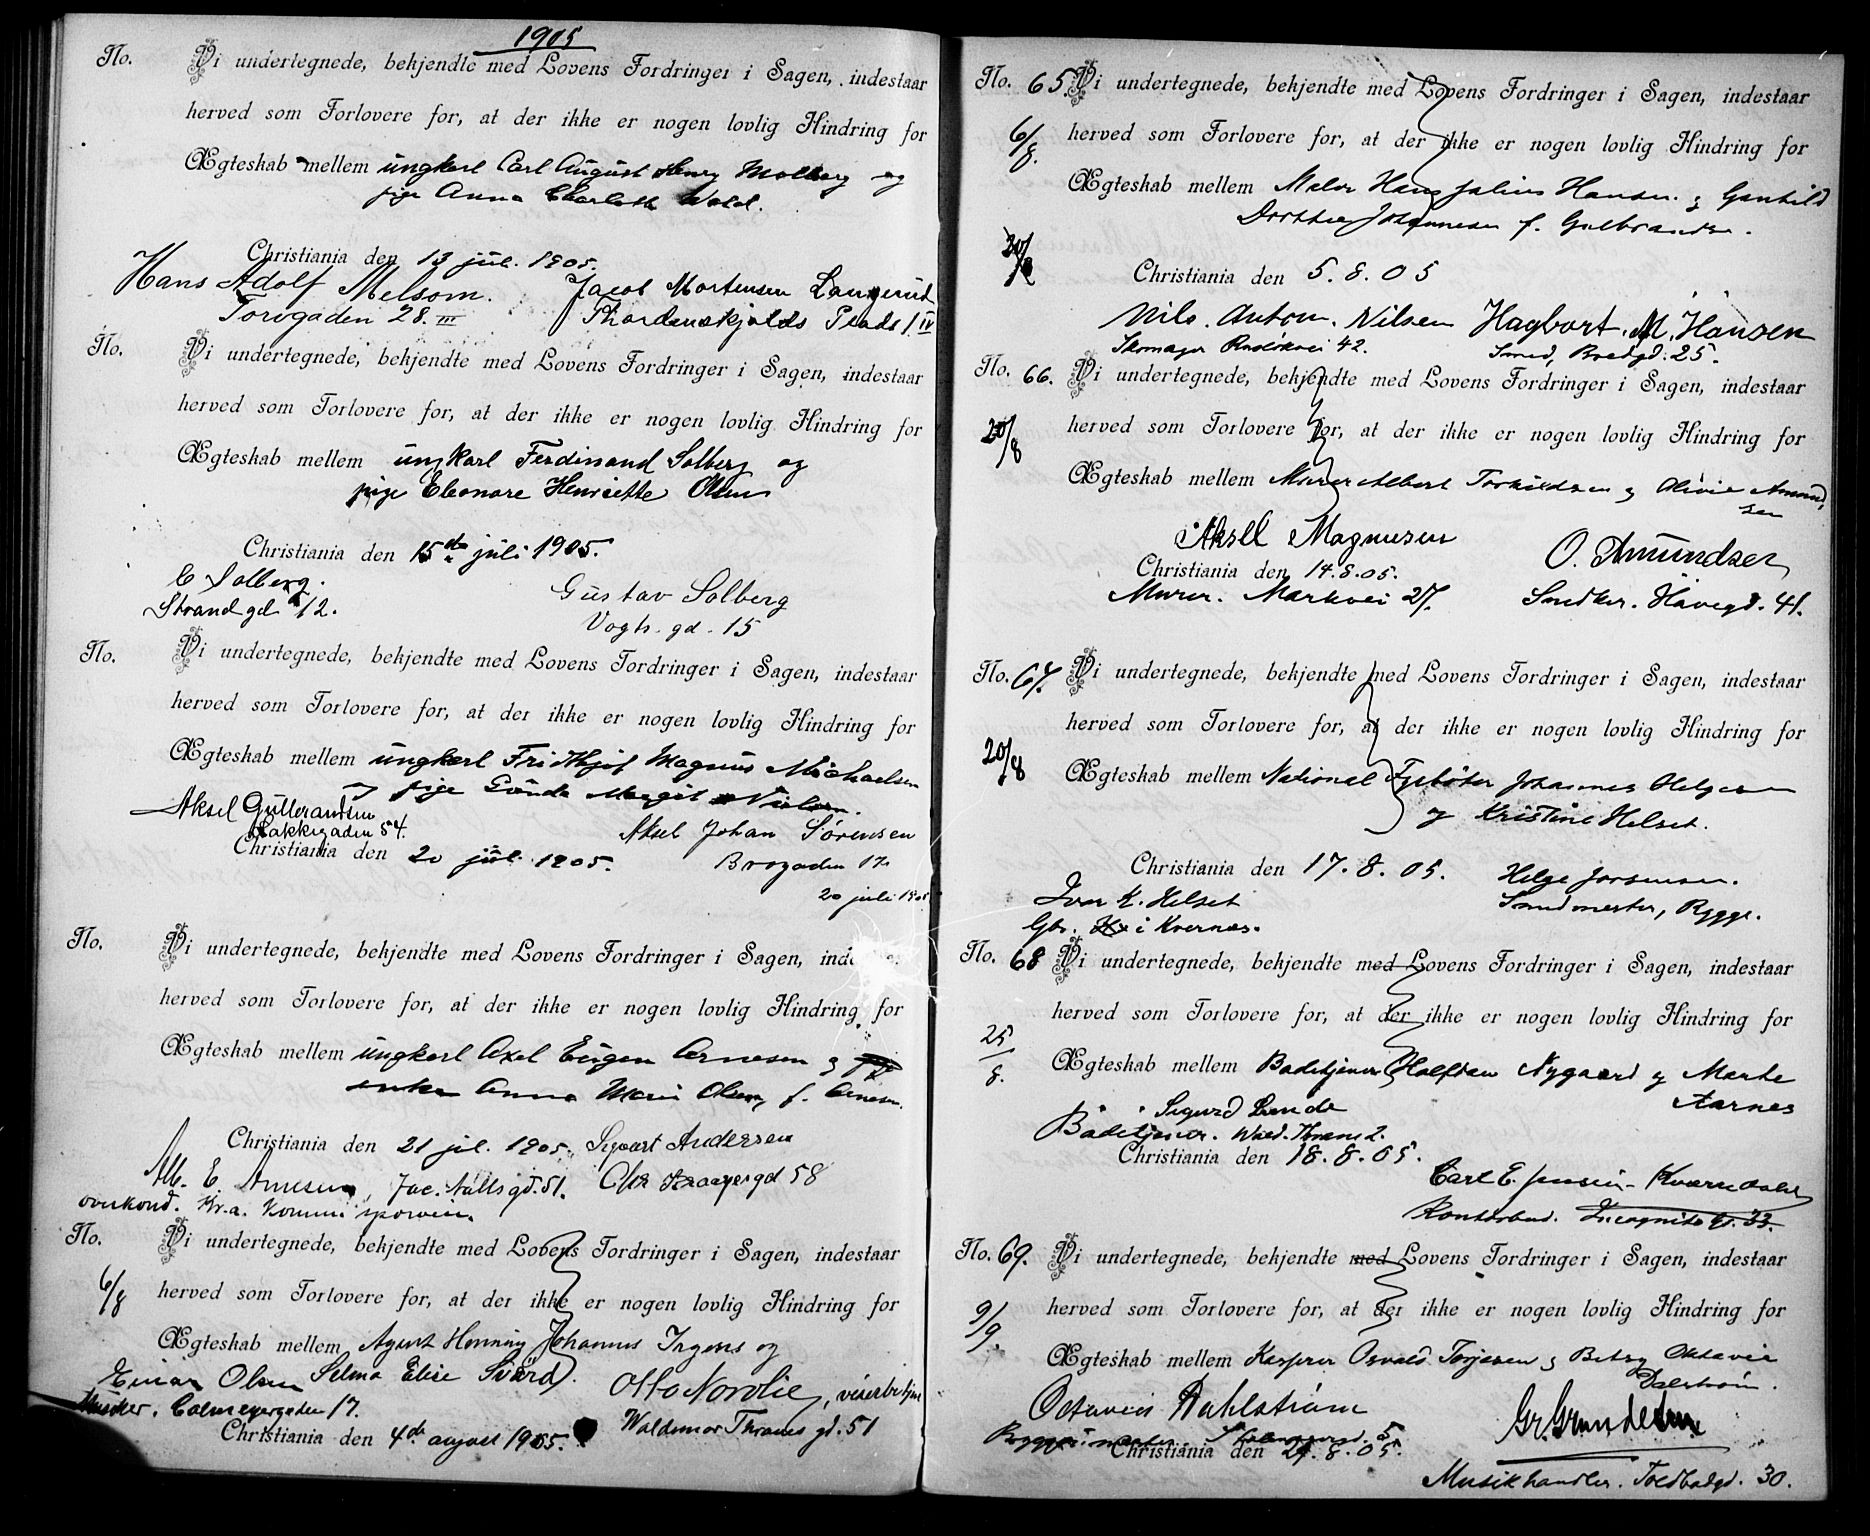 1905
No. Vi undertegnede, bekjendte med Lovens Fordringer i Sagen, indestaar
herved som Forlovere for, at der ikke er nogen lovlig Hindring for
Ægteskab mellem ungkarl Carl August Henry Molberg og
pige Anna Charlotte Wold.
Christiania den 13 jul. 1905.
Hans Adolf Melsom. Jacob Mortensen Langerud
Torvgaden 28. III Thordenskjolds Plads 1. IV
No. Vi undertegnede, bekjendte med Lovens Fordringer i Sagen, indestaar
herved som Forlovere for, at der ikke er nogen lovlig Hindring for
Ægteskab mellem ungkarl Ferdinand Solberg og
pige Eleonore Henriette Olsen
Christiania den 15de juli 1905.
E Solberg. Gustav Solberg
Strandgd 12. Vogts. gd. 15
No. Vi undertegnede, bekjendte med Lovens Fordringer i Sagen, indestaar
herved som Forlovere for, at der ikke er nogen lovlig Hindring for
Ægteskab mellem ungkarl Fridthjof Magnus Michaelsen
og pige Gunda Margit Nielsen.
Aksel Gulbrandsen
Bakkegaden 54. Aksel Johan Sørensen
Christiania den 20 jul. 1905. Brogaden 17
20 juli 1905
No. Vi undertegnede, bekjendte med Lovens Fordringer i Sagen,
herved som Forlovere for, at der ikke er nogen lovlig Hindring for
Ægteskab mellem ungkarl Axel Eugen Arnesen og pige
enke Anna Marie Olsen, f. Arnesen.
Christiania den 21 jul. 1905. Sigvart Andersen
E. Arnesen, Jac. Aallsgd. 51. Chr Kroghsgd 58
overkond. Kr.a. Kommune sporveie.
No. Vi undertegnede, bekjendte med Lovens Fordringer i Sagen, indestaar
6/8 herved som Forlovere for, at der ikke er nogen lovlig Hindring for
Ægteskab mellem Agent Henning Johannes Irgens og
Einar Olsen Selma Elise Svärd. Otto Nordlie,
Musiker. Calmeyergaden 17. Waldemar Thranes gd. 51
Christiania den 4de august 1905.
No. 65. Vi undertegnede, bekjendte med Lovens Fordringer i Sagen, indestaar
6/8. herved som Forlovere for, at der ikke er nogen lovlig Hindring for
Ægteskab mellem Maler Hans Julius Hansen. og Gunhild
Dorthea Johannesen f. Gulbrandsen.
20/8 Christiania den 5. 8. 05
Nils. Anton. Nilsen Hagbart. M. Hansen
Skomager 42. Smed, Bredgd. 25.
No. 66. Vi undertegnede, bekjendte med Lovens Fordringer i Sagen, indestaar
20/8 herved som Forlovere for, at der ikke er nogen lovlig Hindring for
Ægteskab mellem Murer Albert Torkildsen og Olivie Amund,
sen
Aksel Magnusen O. Amundsen
Christiania den 14. 8. 05.
Murer. Markvei 27. Snedker. Havegd. 41.
No. 67. Vi undertegnede, bekjendte med Lovens Fordringer i Sagen, indestaar
herved som Forlovere for, at der ikke er nogen lovlig Hindring for
20/8 Ægteskab mellem National Fyrbøter Johannes Helgesen
og Kristine Helset.
Christiania den 17. 8. 05. Helge Jorsensen.
Iver K. Helset Smedmester, Rygge.
Gbr. i Kvernes.
No. 68 Vi undertegnede, bekjendte med Lovens Fordringer i Sagen, indestaar
herved som Forlovere for, at der ikke er nogen lovlig Hindring for
25/8. Ægteskab mellem Badetjener Halfdan Nygaard og Marte
Aarnes
Sigurd Lunde
Badetjener. Wald. Thranes 2.
Christiania den 18. 8. 05.
Carl E. Jensen-Kværndahl
Kontorbud. Incognito Gt. 33.
No. 69. Vi undertegnede, bekjendte med Lovens Fordringer i Sagen, indestaar
9/9. herved som Forlovere for, at der ikke er nogen lovlig Hindring for
Ægteskab mellem Kasperer Osvald Torjesen og Betsy Oktavia
Dalstrøm.
Octavius Dahlstrøm Gr. Grundesen
5
Christiania den 21. 8. 05.
Musikhandler. Toldbodgd. 30.